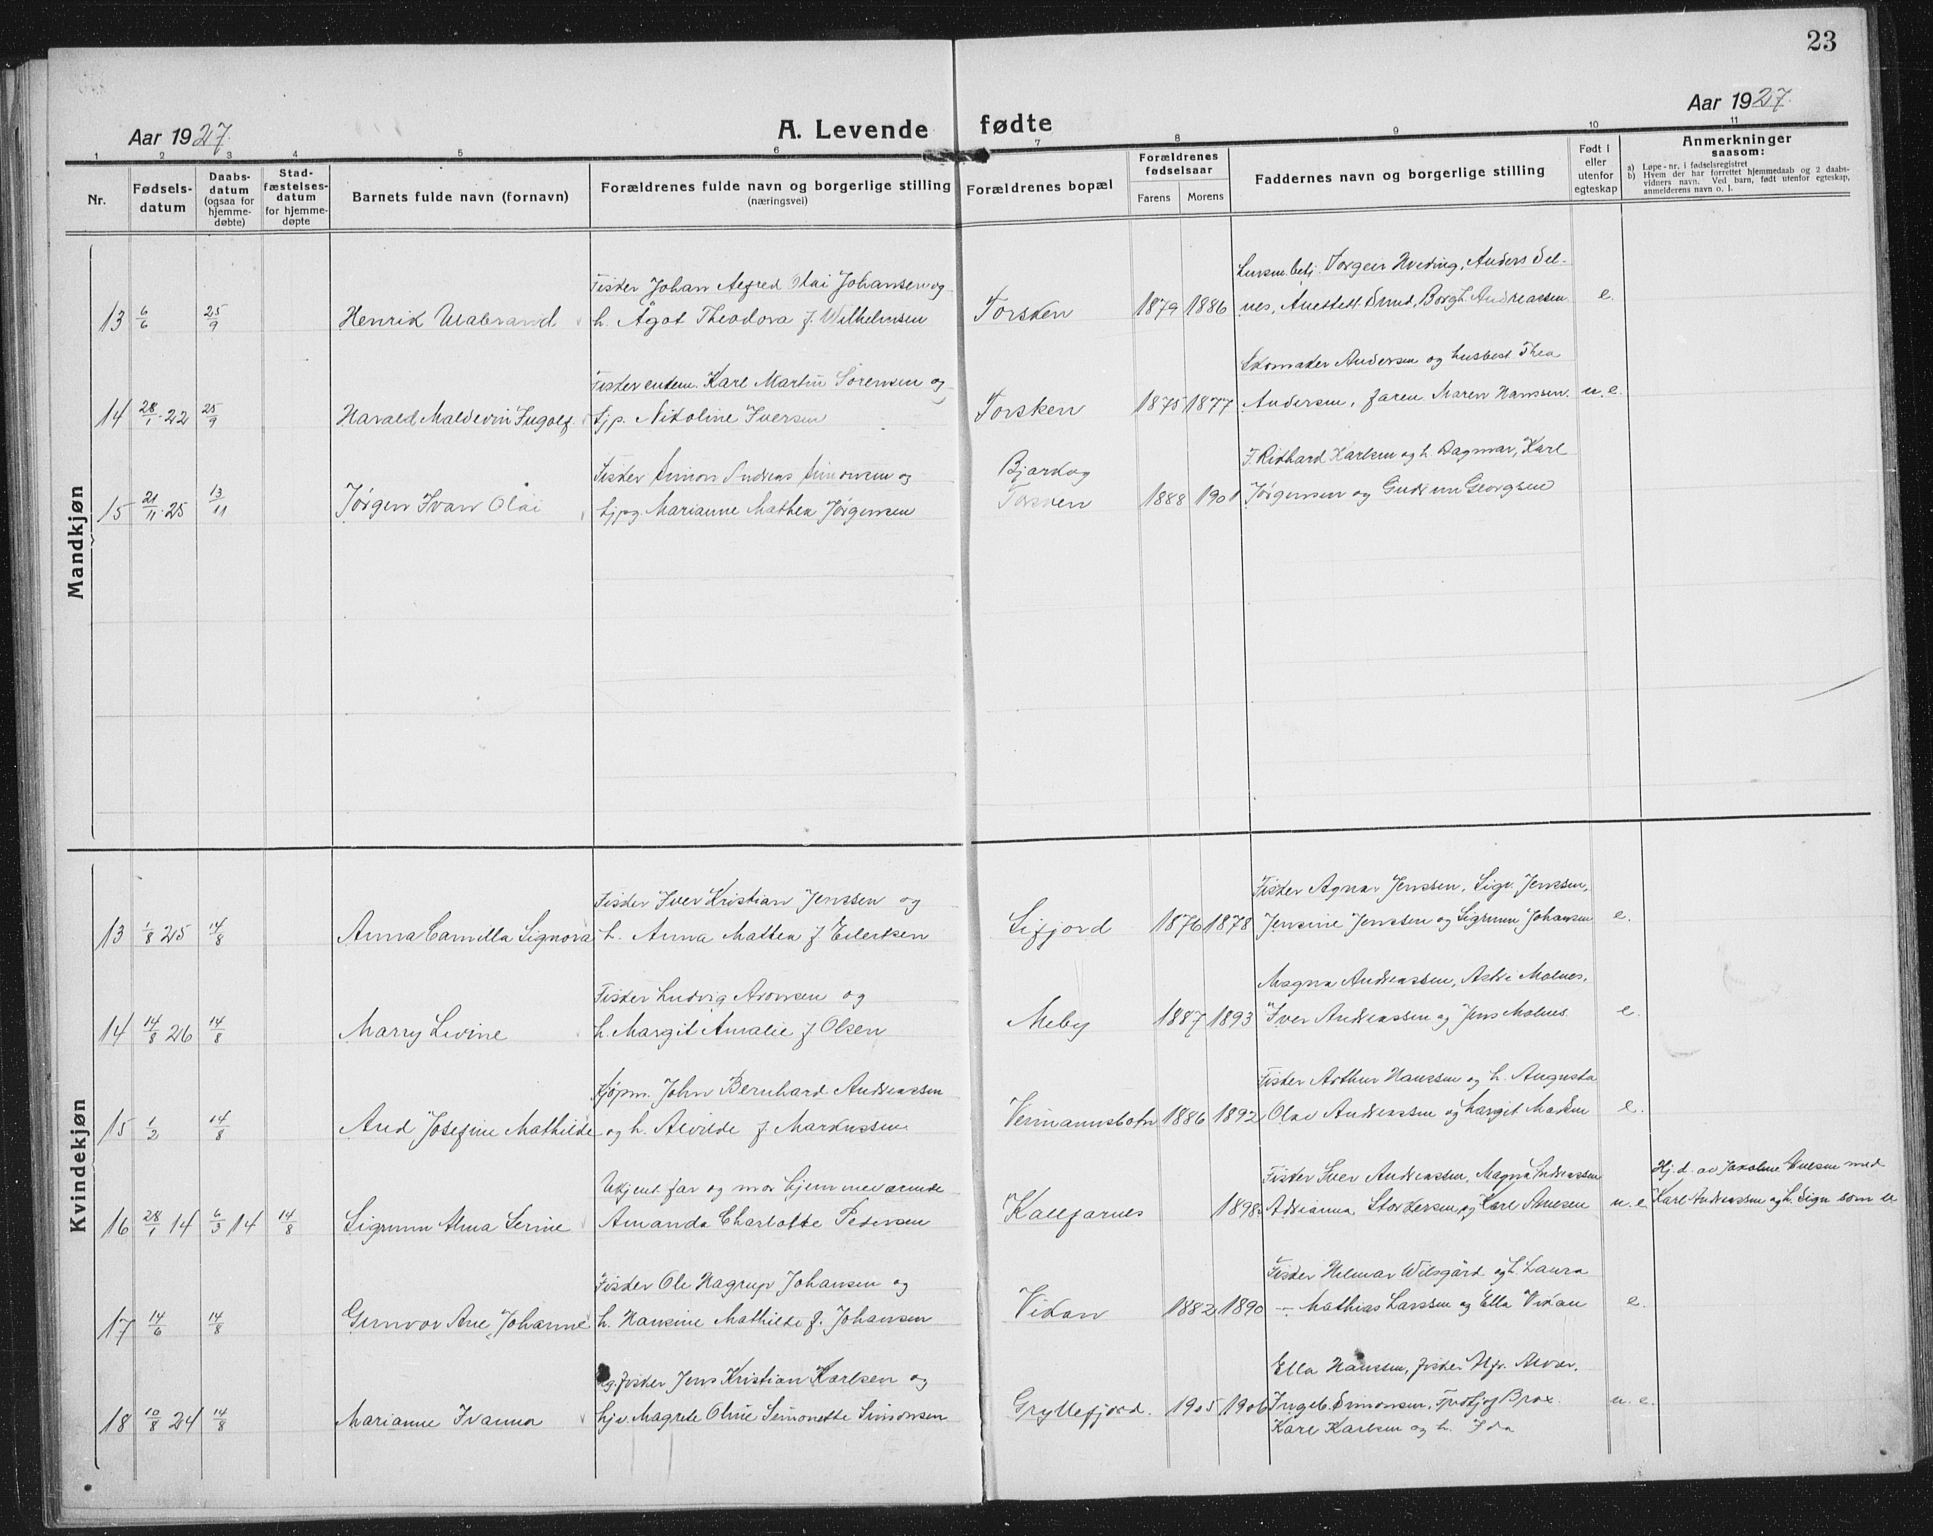 23
Aar 1927. A. Levende fødte Aar 1927.
1 2 3 4 5 6 7 8 9 10 11
Nr.
Fødsels-
datum
Daabs-
datum
(ogsaa for
hjemme-
døbte)
Stad-
fæstelses-
datum
for hjemme-
døpte
Barnets fulde navn (fornavn)
Forældrenes fulde navn og borgerlige stilling
(næringsvei)
Forældrenes bopæl
Forældrenes
fødselsaar
Farens Morens
Faddernes navn og borgerlige stilling
Født i
eller
utenfor
egteskap
Anmerkninger
saasom:
a) Løpe-nr. i fødselsregistret
b) Hvem der har forrettet hjemmedaab og 2 daabs-
vidners navn. Ved barn, født utenfor egteskap,
anmelderens navn o. l.
Mandkjøn
Fisker Johan Alfred Olai Johansen og Jørgen Hveding, Anders Sel-
13 6/6 25/9 Henrik h. Ågot Theodora f. Wilhelmsen Torsken 1879 1886 nes, Borgh. Andreassen e.
Fisker enkem. Karl Martin Sørensen og Skomaker Andersen og Thea
14 28/1 22 25/9 Harald Maldevin Ingolf tjp. Nikoline Iversen Torsken 1875 1877 Andersen, Maren Hanssen. u. e.
Fisker Simon Andreas Simonsen og Bjarkøy F. Rikhard Karlsen og h. Dagmar, Karl
15 21/11 25 13/11 Jørgen Ivan Olai Marianne Mathea Jørgensen Torsken 1888 1901 Jørgensen og Gudrun Georgsen
Kvindekjøn
Fisker Iver Kristian Jenssen og Fisker Agnar Jenssen, Sigv. Jenssen,
13 1/8 25 14/8 Anna Camilla Signora h. Anna Mathea f Eilertsen Sifjord 1876 1878 Jensine Jenssen og Sigrunn Johansen e.
Fisker Ludvig Aronsen og Magna Andreassen, Astri Molnes,
14 14/8 26 14/8 Marry Levine h. Margit Amalie f Olsen Meby 1887 1893 Iver Andreassen og Jens Molnes e.
Kjøpm. John Bernhard Andreassen Fisker Arthur Hanssen og h. Augusta
15 1/2 14/8 Aud Josefine Mathilde og h. Alvilde f. Markussen Veimannsbotn 1886 1892 Olav Andreassen og Margit Madsen e.
Ukjent far og mor hjemmeværende Fisker Iver Andreassen, Magna Andreassen Hj. d. av Jakoline med
16 28/1 14 6/3 14 14/8 Sigrunn Alma Serine Amanda Charlotte Pedersen Kallfarnes 1898 Adrianna Storkersen og Karl u. e. Karl Andreassen og h. Sign som
Fisker Ole Hagrup Johansen og Fisker Hilmar Wilsgård og h. Laura
17 14/6 14/8 Gunvor Ane Johanne h. Hansine Mathilde f. Johansen Vikan 1882 1890 — Mathias Larssen og Ella Vikan e.
Ug. fisker Jens Kristian Karlsen og Ella Hanssen, fisker Hj. Alvær,
18 10/8 24 14/8 Marianne Ivanna Magrete Oline Simonette Simonsen Gryllefjord. 1905 1906 Ingeb. Simonsen, Fridtjof Brox. u. e.
Karl Karlsen og h. Ida